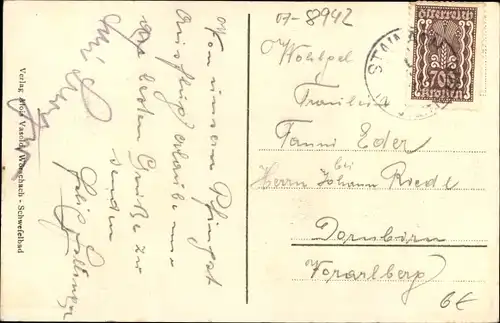 07-8942
Österreich
700
Kronen
STAIN
Wohlgeb
Fräulein
Fanni Eder
bei
Herrn Johann Riedl
Dornbirn
Vorarlberg
6€
Von unserm Pfingst
Ausflug erlaube mir
die besten Grüße zu
senden
Verlag Alois Vasold, Wörschach - Schwefelbad